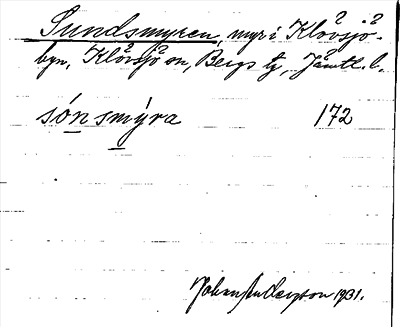 Sundsmyren, myr i Klövsjö-
byn, Klövsjö sn, Bergs tg, Jämtl. l.
són smýra 172
Johan Anderson 1931.